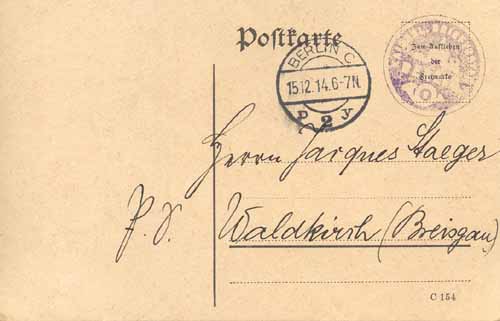 Postkarte
BERLIN C.
15.12.14.6-7N.
2 y
Zum Aufkleben
der
Freimarke
Herrn Jacques Staeger
P. S.
Waldkirch (Breisgau)
C 154